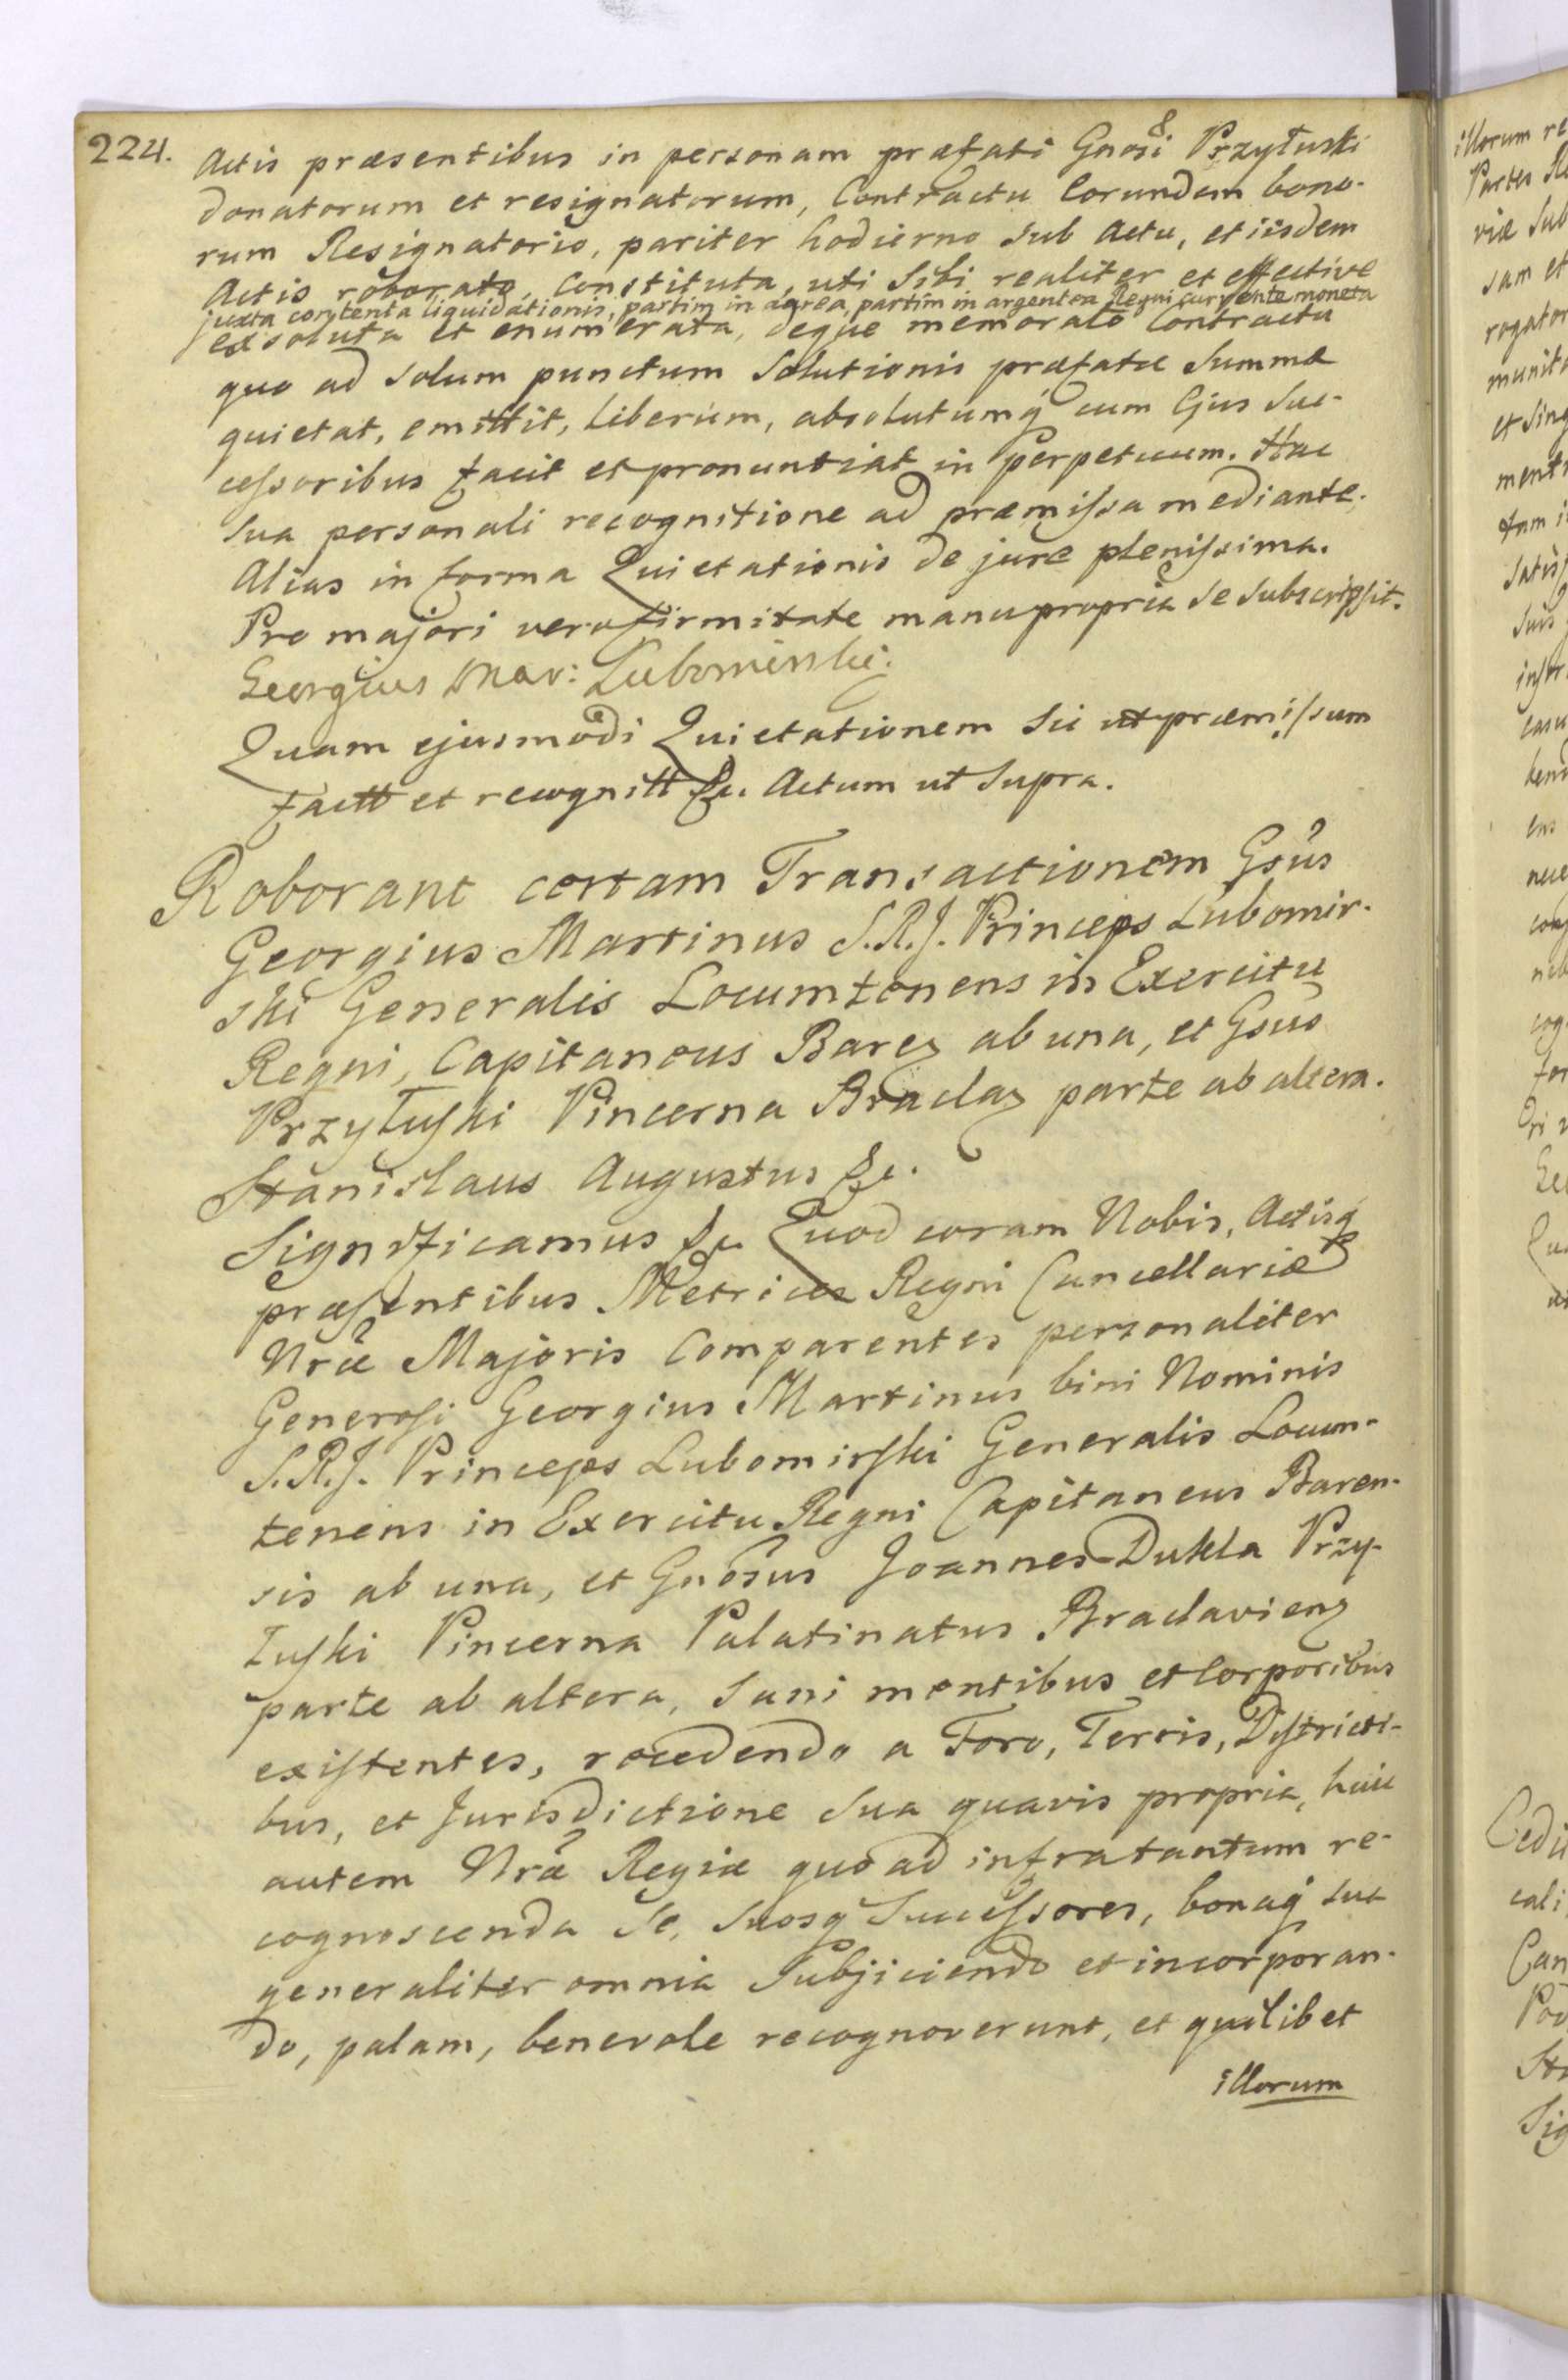 224.
Actis præsentibus in personam præfati Gnosi Przyłuski
donatorum et resignatorum, Contractu Eorundem bono-
rum Resignatorio, pariter hodierno sub Actu, et iisdem
Actis roborato, constituta, uti Sibi realiter et effective
juxta contenta liquidationis, partim in aurea, partim in argentea Regni currente moneta
exsoluta et enumerata, deque memorato Contractu
quo ad solum punctum Solutionis præfatæ Summæ
quietat, emittit, liberum, absolutumq́ cum Ejus Suc-
cessoribus facit et pronuntiat in perpetuum. Hac
sua personali recognitione ad præmissa mediante.
Alias in forma Quietationis de jure plenissima.
Pro majori vero firmitate manu propria se subscripsit.
Georgius Mar: Lubomirski.
Quam ejusmodi Quietationem sic ut præmissum
factt et recognitt &c. Actum ut supra.
Roborant certam Transactionem Gsus
Georgius Martinus S.R.J. Princeps Lubomir-
ski Generalis Locumtenens in Exercitu
Regni, Capitaneus Barez ab una, et Gsus
Przyłuski Pincerna Braclaz parte ab altera.
Stanislaus Augustus &c.
Significamus &c. Quod coram Nobis, Actisq
præsentibus Metrices Regni Cancellariæ
Nræ Majoris Comparentes personaliter
Generosi Georgius Martinus bini Nominis
S.R.J. Princeps Lubomirski Generalis Locum-
tenens in Exercitu Regni Capitaneus Baren-
sis ab una, et Gnosus Joannes Dukla Przy-
łuski Pincerna Palatinatus Braclavienz
parte ab altera, Sani mentibus et Corporibus
existentes, recedendo a Foro, Terris, Districti-
bus, et Jurisdictione Sua quavis propria, huic
autem Nræ Regiæ quo ad infra tantum re-
cognoscenda Se, Suosq́ Successores, bonaq́ sua
generaliter omnia Subjiciendo et incorporan-
do, palam, benevole recognoverunt, et quilibet
illorum